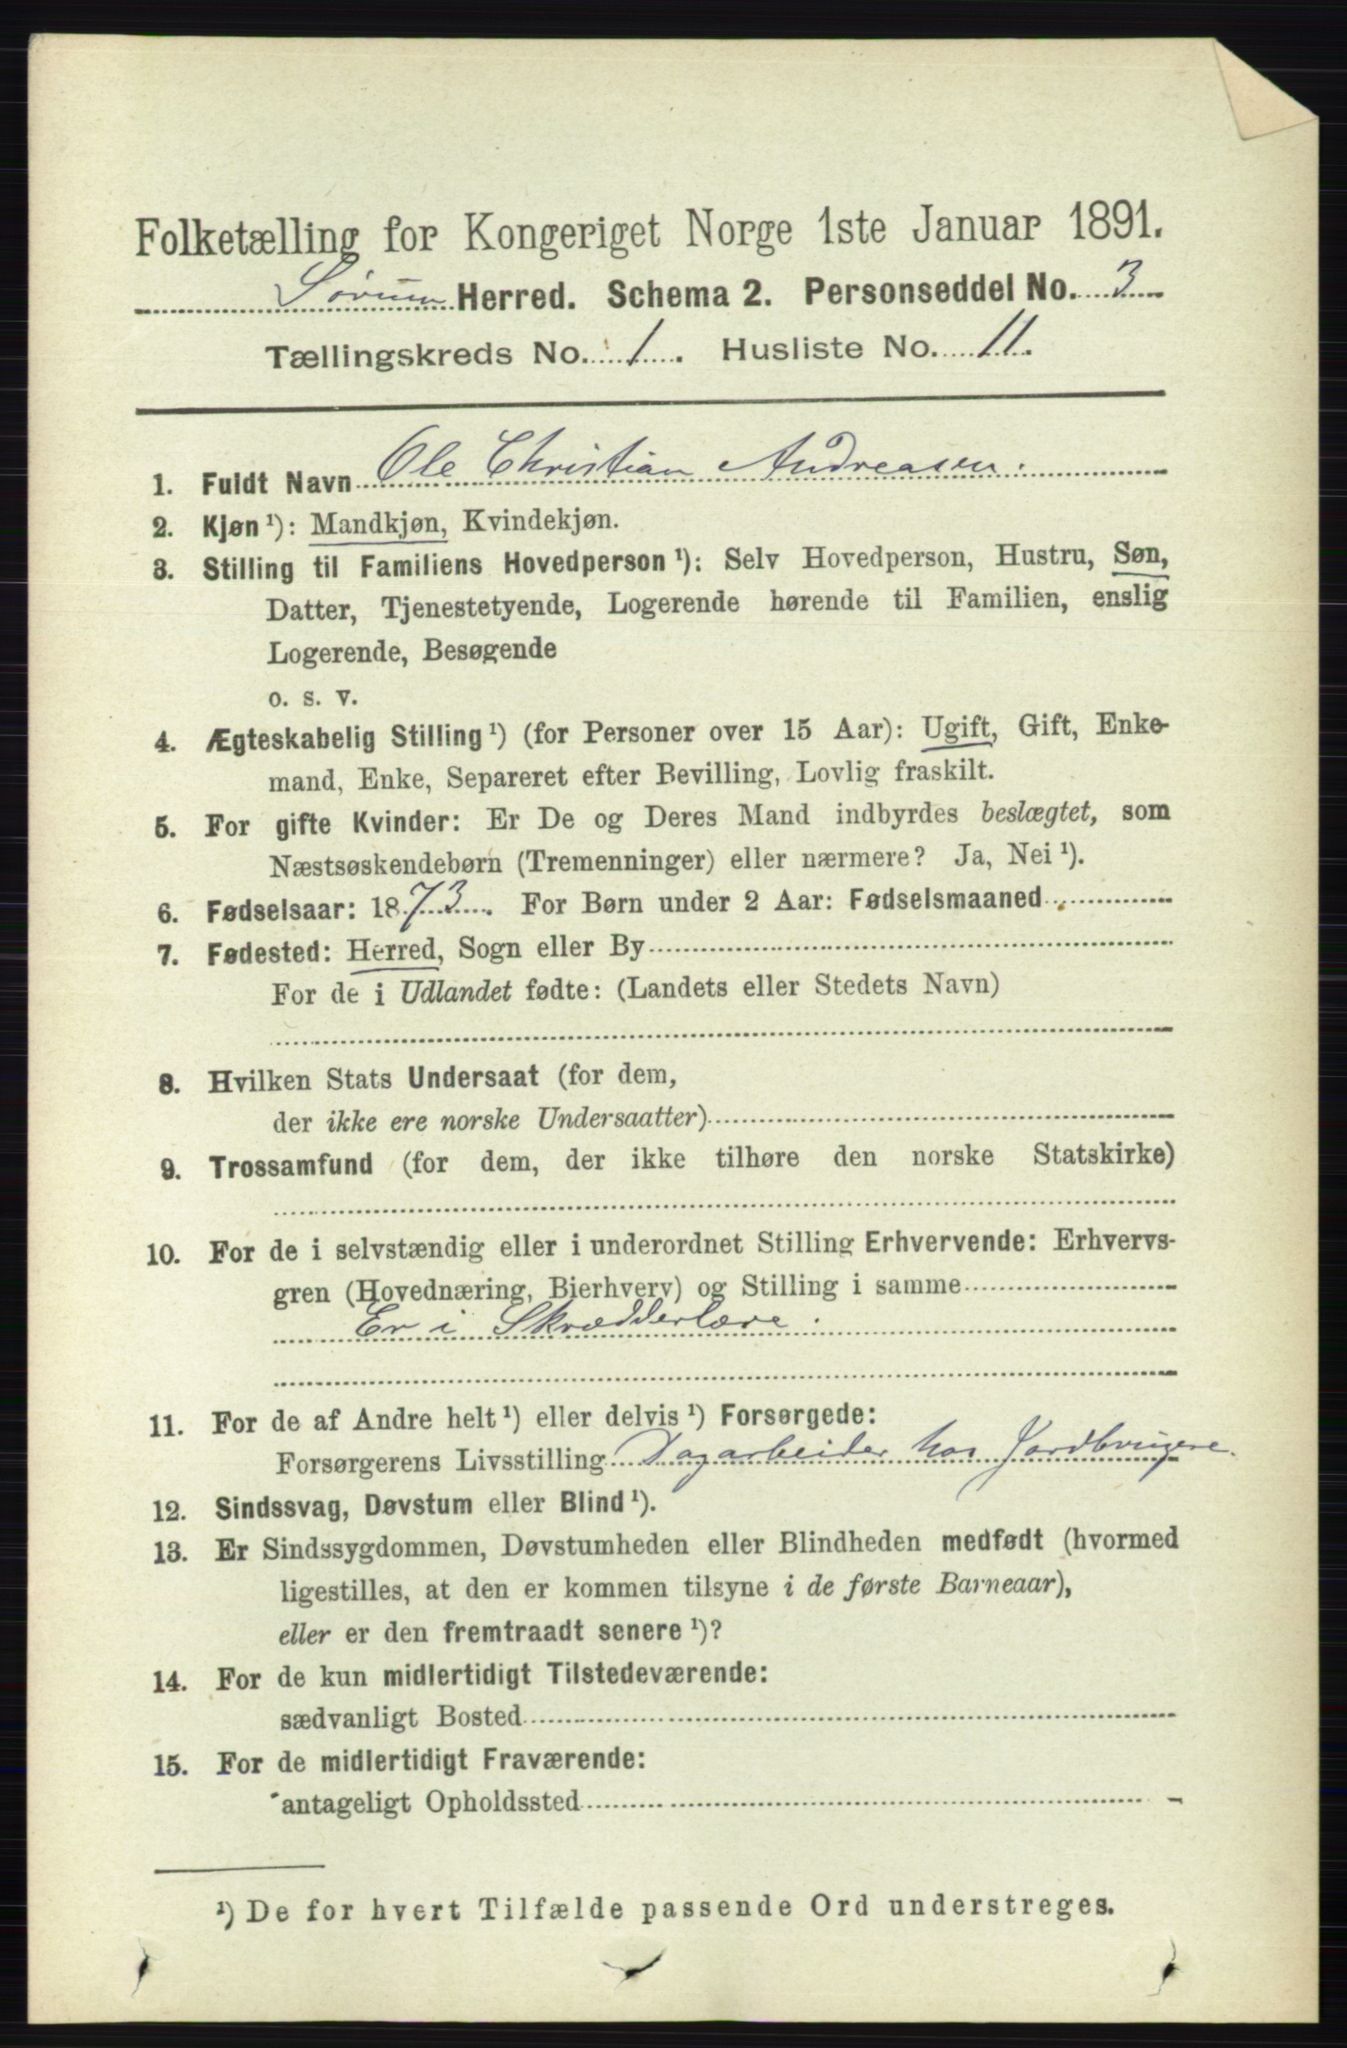 Folketælling for Kongeriget Norge 1ste Januar 1891.
Sørum Herred. Schema 2. Personseddel No. 3
Tællingskreds No. 1. Husliste No. 11.
1. Fuldt Navn Ole Christian Andreasen.
2. Kjøn ¹): Mandkjøn, Kvindekjøn.
3. Stilling til Familiens Hovedperson ¹): Selv Hovedperson, Hustru, Søn,
Datter, Tjenestetyende, Logerende hørende til Familien, enslig
Logerende, Besøgende
o. s. v.
4. Ægteskabelig Stilling ¹) (for Personer over 15 Aar): Ugift, Gift, Enke-
mand, Enke, Separeret efter Bevilling, Lovlig fraskilt.
5. For gifte Kvinder: Er De og Deres Mand indbyrdes beslægtet, som
Næstsøskendebørn (Tremenninger) eller nærmere? Ja, Nei ¹).
6. Fødselsaar: 1873. For Børn under 2 Aar: Fødselsmaaned
7. Fødested: Herred, Sogn eller By
For de i Udlandet fødte: (Landets eller Stedets Navn)
8. Hvilken Stats Undersaat (for dem,
der ikke ere norske Undersaatter)
9. Trossamfund (for dem, der ikke tilhøre den norske Statskirke)
10. For de i selvstændig eller i underordnet Stilling Erhvervende: Erhvervs-
gren (Hovednæring, Bierhverv) og Stilling i samme
Er i Skrædderlære.
11. For de af Andre helt ¹) eller delvis ¹) Forsørgede:
Forsørgerens Livsstilling Dagarbeider hos Jordbrugere.
12. Sindssvag, Døvstum eller Blind ¹).
13. Er Sindssygdommen, Døvstumheden eller Blindheden medfødt (hvormed
ligestilles, at den er kommen tilsyne i de første Barneaar),
eller er den fremtraadt senere ¹)?
14. For de kun midlertidigt Tilstedeværende:
sædvanligt Bosted
15. For de midlertidigt Fraværende:
antageligt Opholdssted
¹) De for hvert Tilfælde passende Ord understreges.